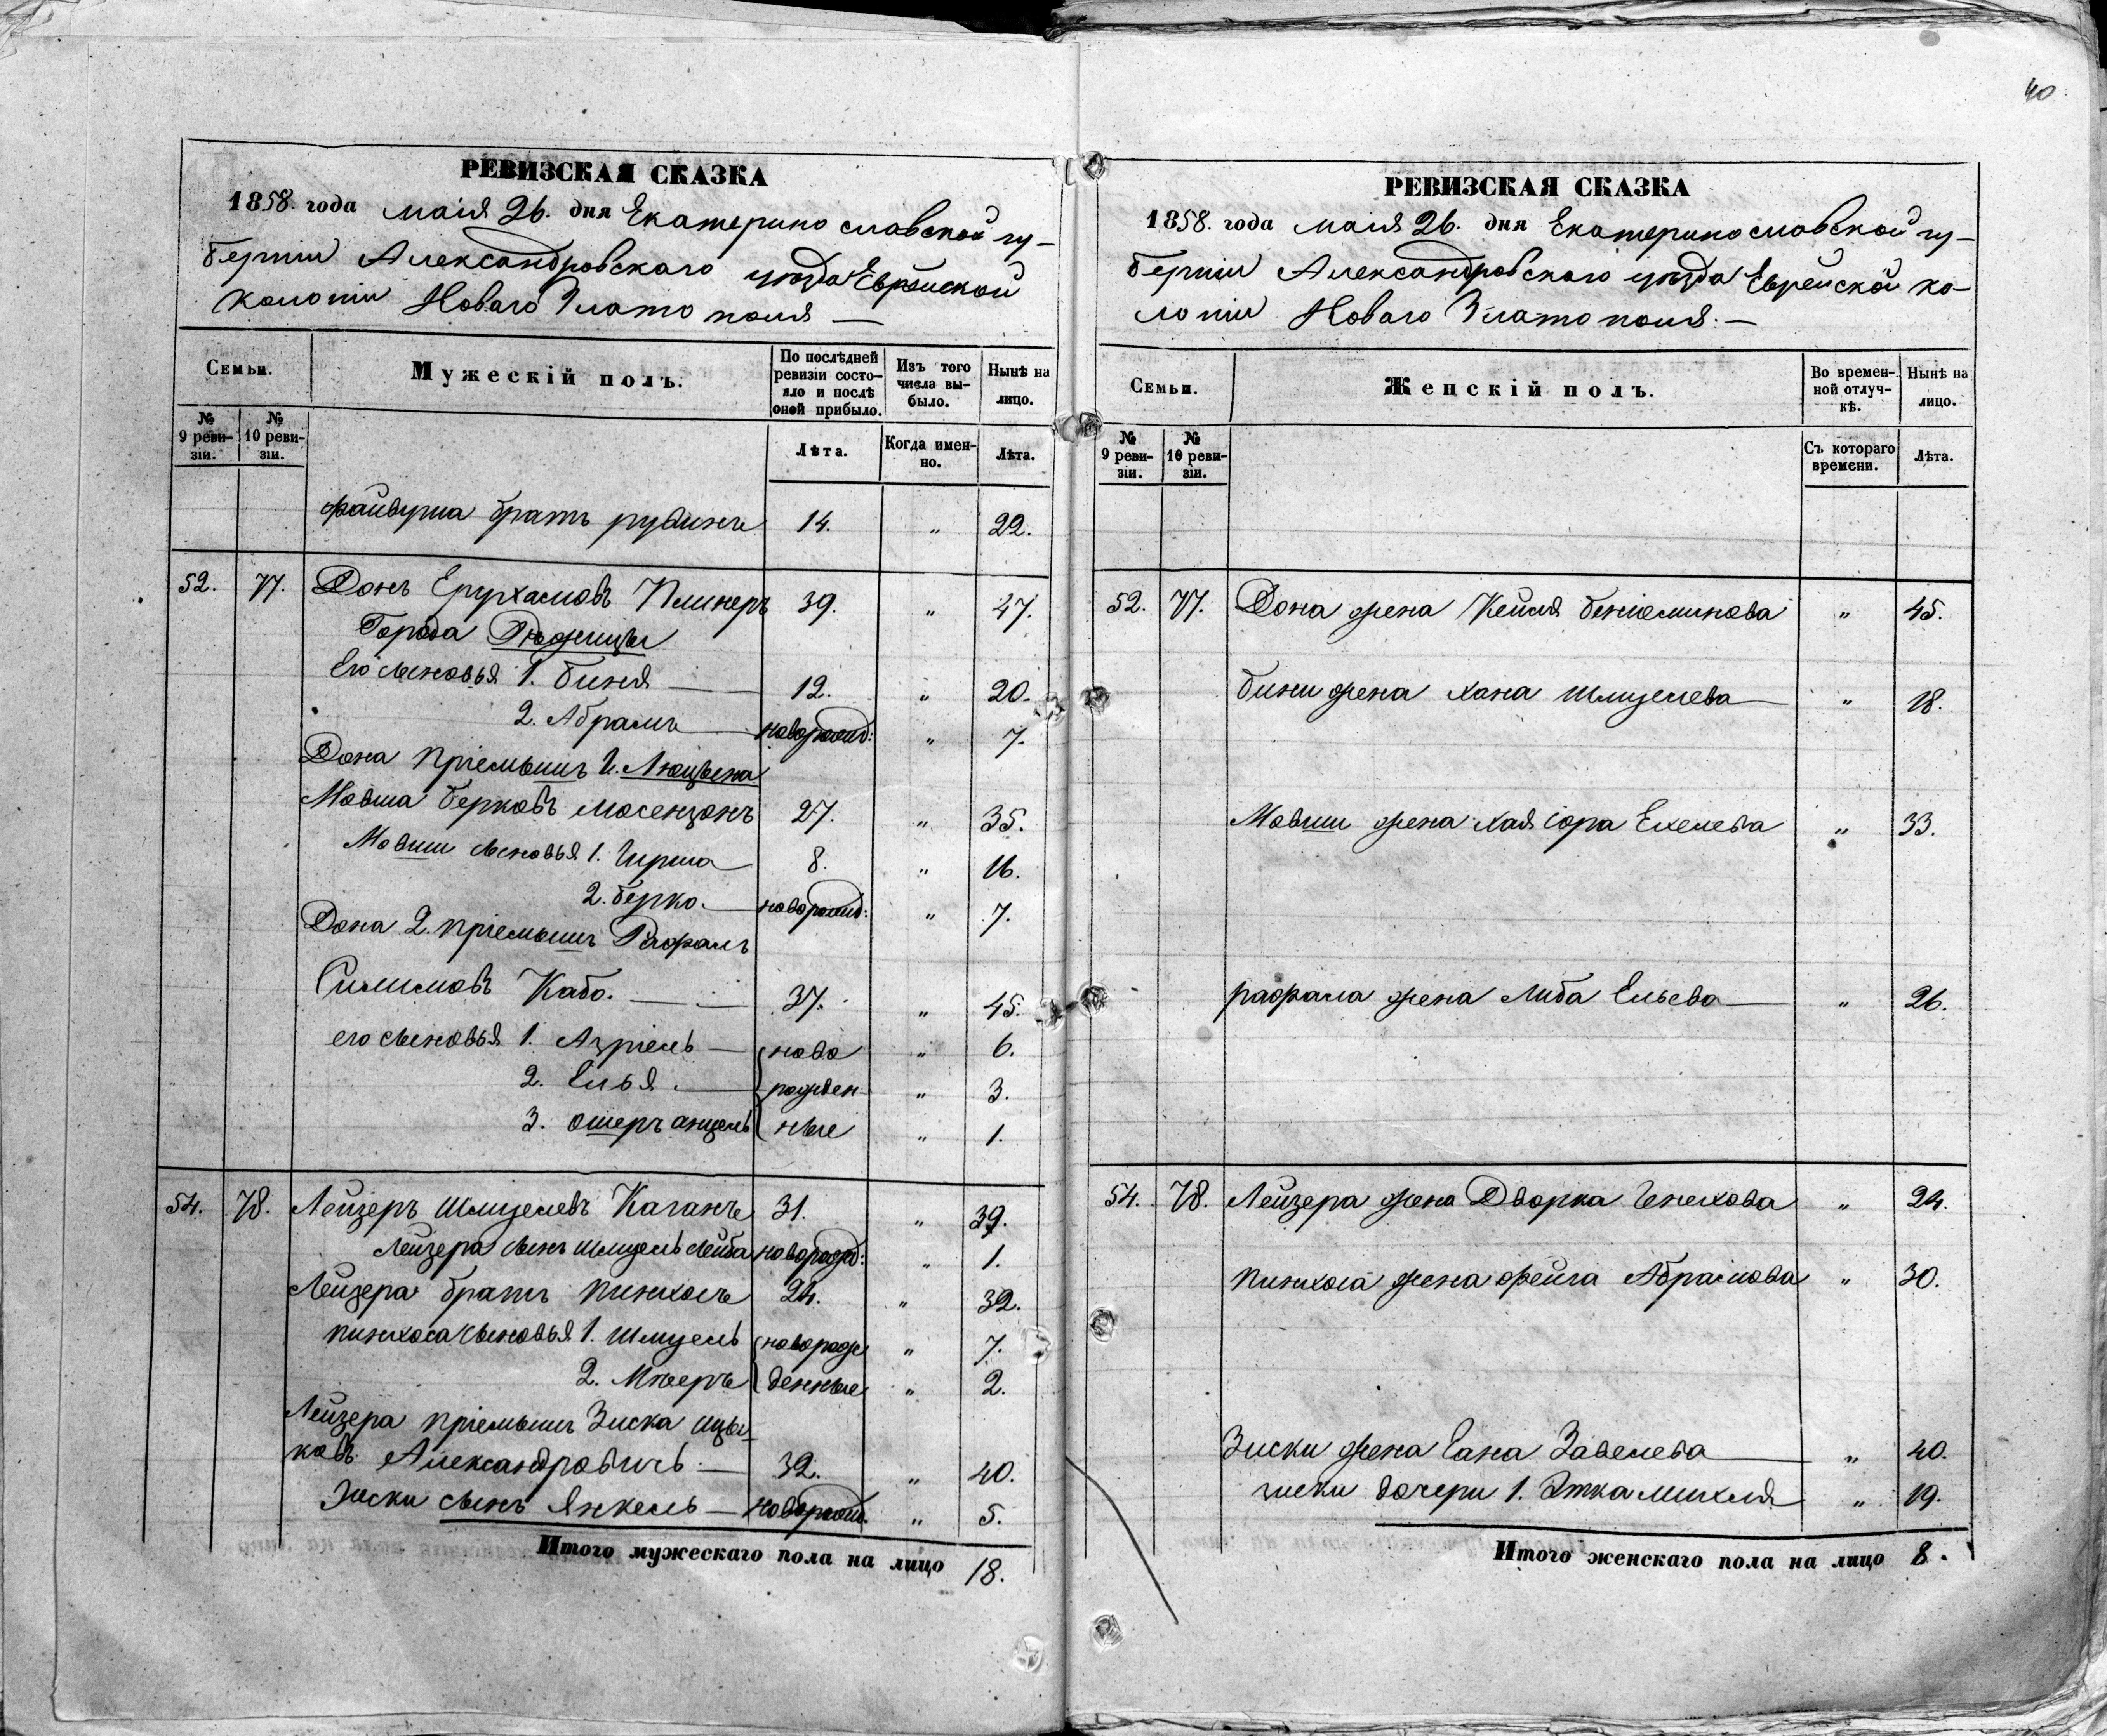 40
РЕВИЗСКАЯ СКАЗКА
1858. года маія 26. дня Екатеринославской гу-
берніи Александровскаго уѣзда Еврейской
колоніи Новаго Златополя —
Семьи.
Мужескій полъ.
По послѣдней ревизіи состо-яло и послѣ оной прибыло.
Изъ того числа вы-было.
Нынѣ на лицо.
№ 9 реви-зіи.
№ 10 реви-зіи.
Лѣта.
Когда имен-но.
Лѣта.
Файвуша братъ рувинъ 14. „ 22.
52. 77. Донъ Ерухамовъ Плинеръ 39. „ 47.
Города Рѣжицы
Его сыновья 1. Биня — 12. „ 20.
2. Абрамъ — новорожд: „ 7.
Дона пріемышъ 1. Люцына
Мовша Берковъ Мосензонъ 27. „ 35.
Мовши сыновья 1. Гирша 8. „ 16.
2. Берко. — новорожд: „ 7.
Дона 2. пріемышъ Рафалъ
Симимовъ Кабо. — 37. „ 45.
его сыновья 1. Азріель — ново „ 6.
2. Елья. — рожден- „ 3.
3. ошеръ анцель ные „ 1.
54. 78. Лейзеръ Шмуелевъ Каганъ 31. „ 39.
Лейзера сынъ Шмуель Лейба новорожд: „ 1.
Лейзера братъ Пинхосъ 24. „ 32.
Пинхоса сыновья 1. Шмуель новорож „ 7.
2. Мѣеръ денные „ 2.
Лейзера пріемышъ Зиска ицы-
ковъ Александровичъ — 32. „ 40.
Зиски сынъ Янкель — новорожд. „ 5.
Итого мужескаго пола на лицо 18.
РЕВИЗСКАЯ СКАЗКА
1858. года маія 26. дня Екатеринославской гу-
берніи Александровскаго уѣзда Еврейской ко-
лоніи Новаго Златополя. —
Семьи.
Женскій полъ.
Во времен-ной отлуч-кѣ.
Нынѣ на лицо.
№ 9 реви-зіи.
№ 10 реви-зіи.
Съ котораго времени.
Лѣта.
52. 77. Дона жена Кейля Беніоминова „ 45.
Бини жена Хана Шмуелева — „ 18.
Мовши жена Хая Сора Ехелева „ 33.
рафала жена Либа Ельева — „ 26.
54. 78. Лейзера жена Дворка Генехова „ 24.
Пинхоса жена Фейга Абрамова „ 30.
Зиски жена Гана Завелева — „ 40.
зиски дочери 1. Этка Михля „ 19.
Итого женскаго пола на лицо 8.